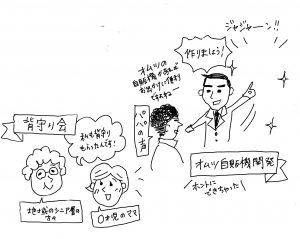 ジャジャーン!!
作りましょう!
オムツの
自販機があれば
お出かけに便利
ですねー
パパの声
背守り会
私も背守り
もらったんです!
オムツ自販機開発
ホントに
できちゃった
地域のシニア層の
方々
0才児のママ